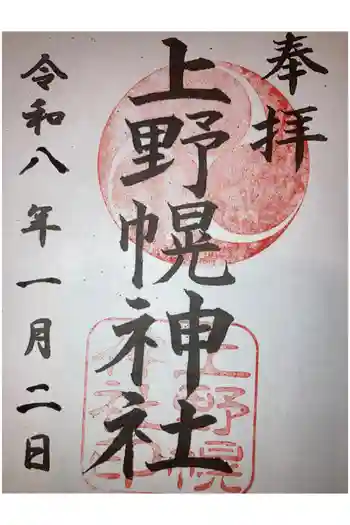 奉拝
上野幌神社
令和八年一月二日
上野幌
神社印